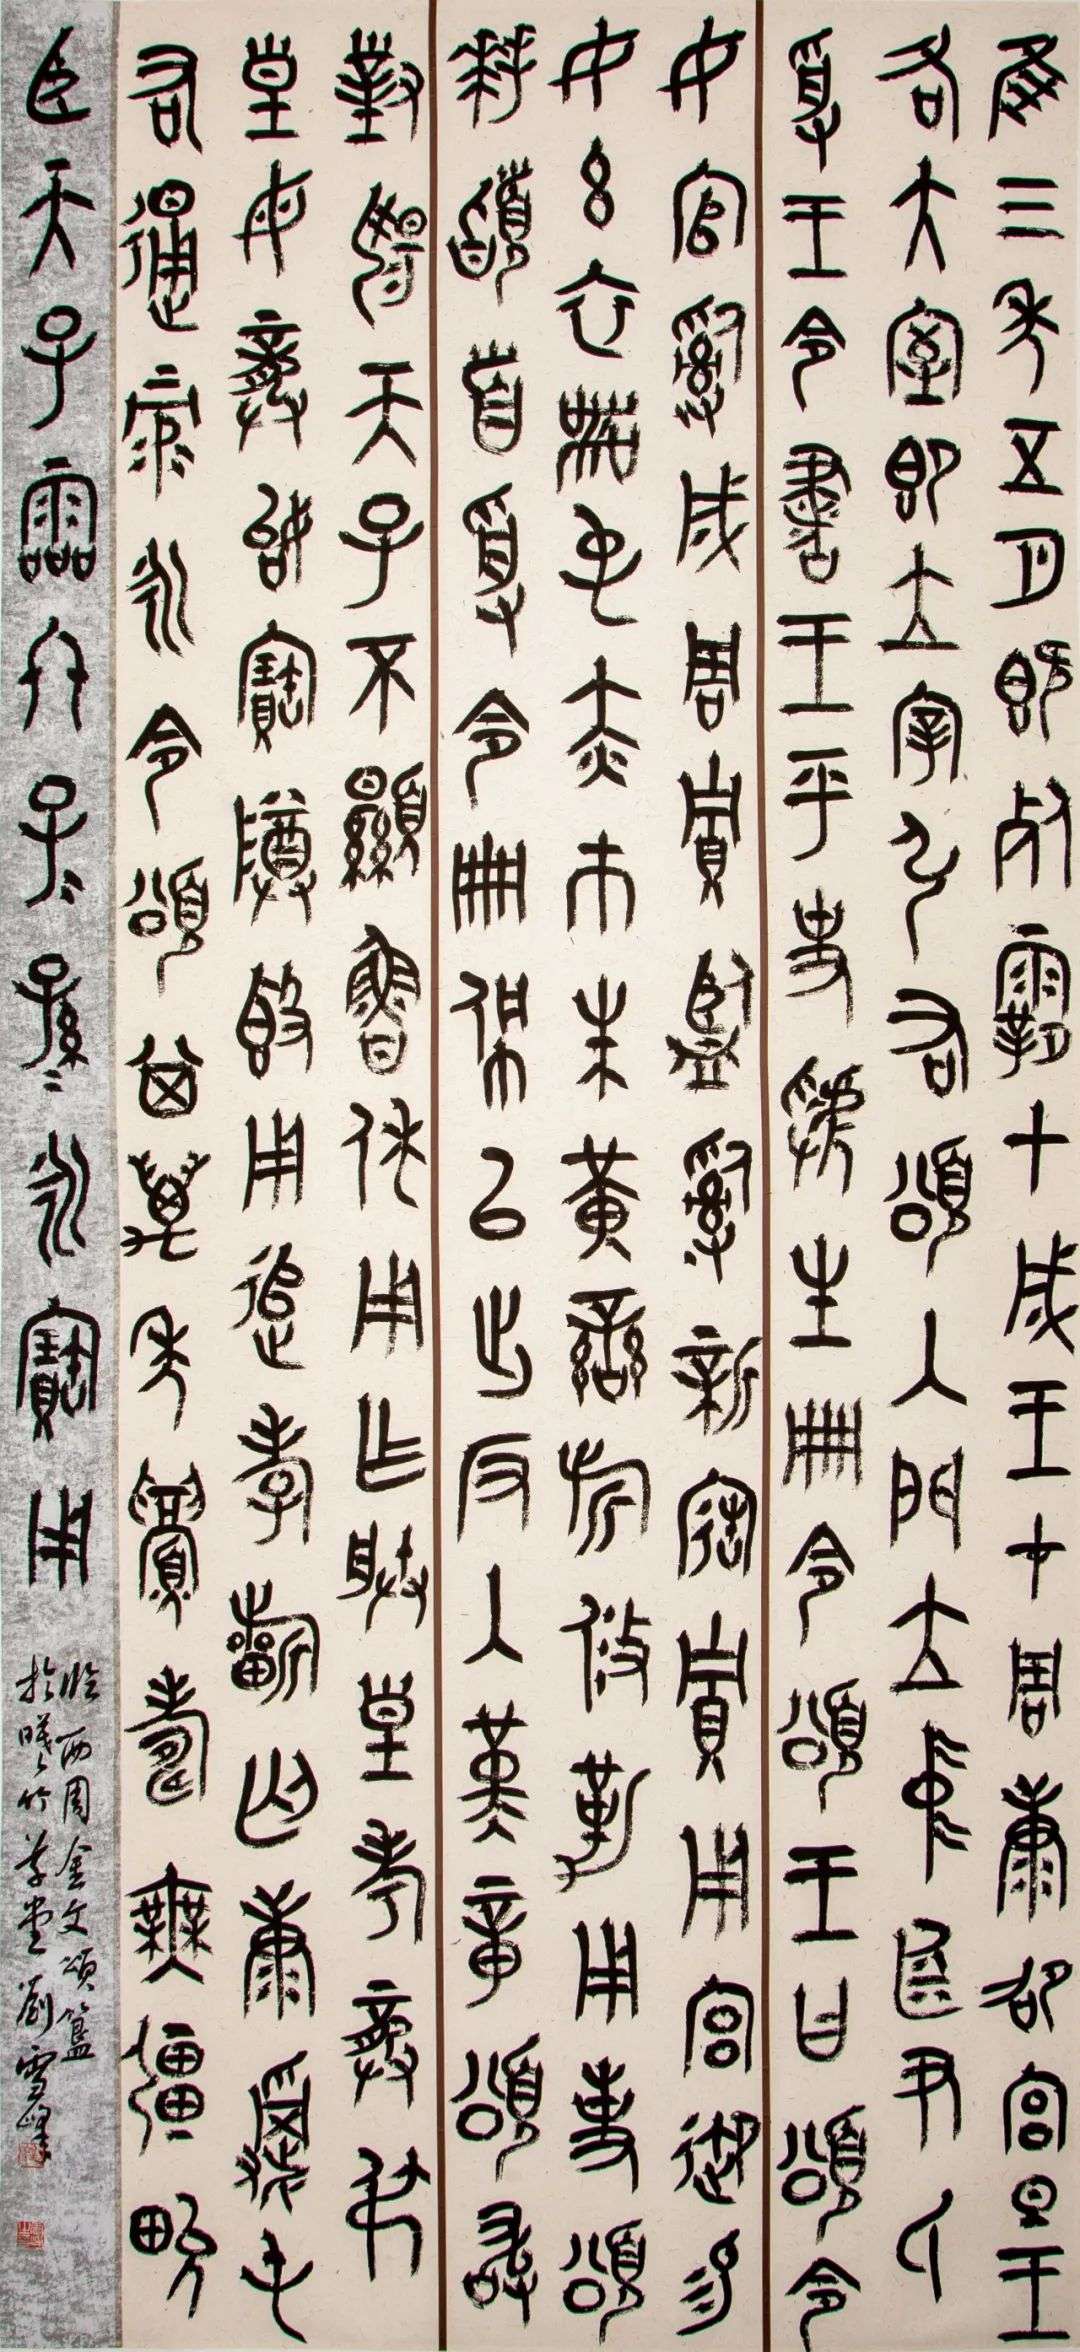 隹三年五月既死霸甲戌王才周康卲宮旦王
各大室即立宰弘右頌入門立中廷尹氏
受王令書王乎史虢生冊令頌王曰頌令
女官𤔲成周貯監𤔲新造貯用宮御易
女玄衣黹屯赤巿朱黃鑾旂攸勒用事頌
拜𩒨首受令冊佩以出反入堇章頌敢
對揚天子不顯魯休用乍朕皇考龏弔
皇母龏姒寶尊簋用追孝祈匄康𩛥屯
右通彔永令頌其萬年眉壽無疆畯
臣天子霝冬子=孫=永寶用
臨西周金文頌簋
於竹草堂劉雪峰